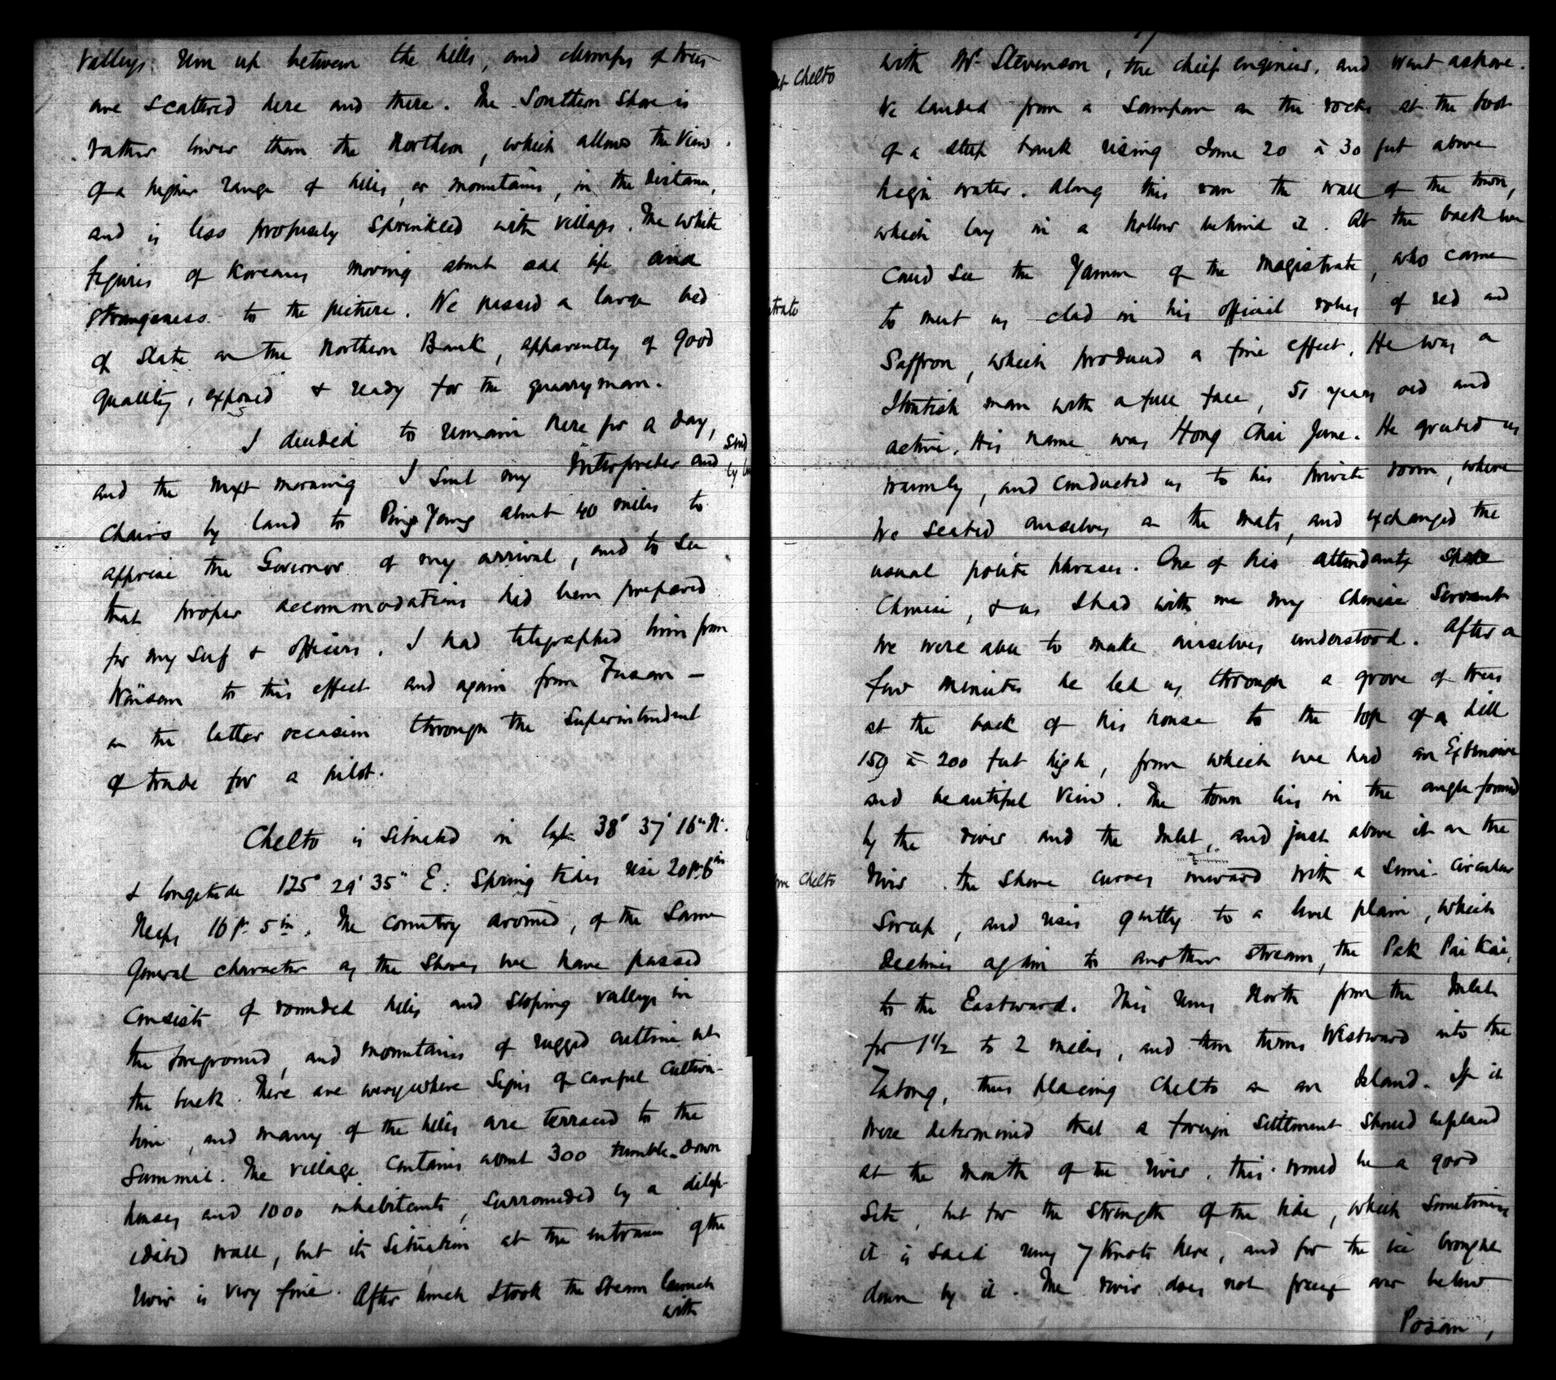 Valleys run up between the hills, and clumps of trees
are scattered here and there. The Southern Shore is
rather lower than the Northern, which allows the view
of a higher range of hills, or mountains, in the distance,
and is less profusely sprinkled with villages. The white
figures of Koreans moving about add life and
strangeness to the picture. We passed a large bed
of Slate on the Northern Bank, apparently of good
quality, exposed & ready for the quarryman.
I decided to remain here for a day,
and the next morning I sent my Interpreter and
Chairs by land to Ping Yang about 40 miles to
apprise the Governor of my arrival, and to see
that proper accommodations had been prepared
for myself & officers. I had telegraphed him from
Wönsan to this effect and again from Fusan –
on the latter occasion through the Superintendent
of trade for a pilot.
Chelto is situated in lat. 38° 37' 16" N.
& longitude 125° 29' 35" E: Spring tides rise 20ft 6in
Neaps 16ft 5in. The country around, of the same
general character as the Shores we have passed
consists of rounded hills and sloping valleys in
the foreground, and mountains of rugged outline at
the back. There are everywhere signs of careful cultiva-
tion, and many of the hills are terraced to the
Summit. The village contains about 300 tumble-down
houses and 1000 inhabitants, surrounded by a dilap-
idated wall, but its situation at the entrance of the
river is very fine. After lunch I took the steam launch
with
with Mr. Stevenson, the chief engineer, and went ashore.
We landed from a Sampan on the rocks at the foot
of a steep bank rising some 20 à 30 feet above
high water. Along this ran the wall of the town,
which lay in a hollow behind it. At the back we
could see the Yamen of the Magistrate, who came
to meet us clad in his official robes of red and
Saffron, which produced a fine effect. He was a
Stoutish man with a full face, 51 years old and
active. His name was Hong Chai June. He greeted us
warmly, and conducted us to his private room, where
we seated ourselves on the mats, and exchanged the
usual polite phrases. One of his attendants spoke
Chinese, & as I had with me my Chinese Servant
we were able to make ourselves understood. After a
few minutes he led us through a grove of trees
at the back of his house to the top of a hill
150 à 200 feet high, from which we had an Extensive
and beautiful view. The town lies in the angle formed
by the river and the Inlet, and just above it on the
river the shore curves inward with a semi-circular
sweep, and rises gently to a level plain, which
declines again to another stream, the Pak Pai Kai,
to the Eastward. This runs North from the Inlet
for 1½ to 2 miles, and then turns Westward into the
Tatong, thus placing Chelto on an Island. If it
were determined that a foreign Settlement should be placed
at the mouth of the river, this would be a good
Site, but for the strength of the tide, which sometimes
it is said runs 7 Knots here, and for the ice brought
down by it. The river does not freeze over below
Posan,
at Chelto